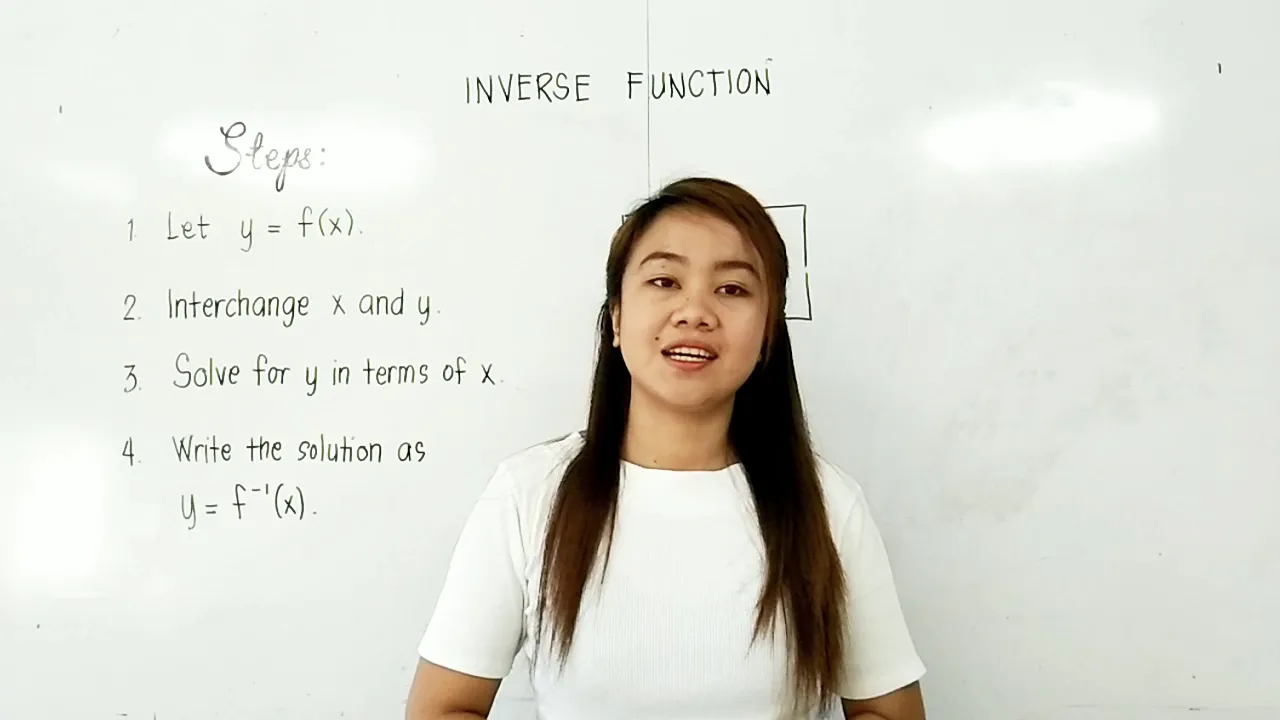 INVERSE FUNCTION
Steps:
1. Let y = f(x).
2. Interchange x and y.
3. Solve for y in terms of x.
4. Write the solution as
y = f⁻¹(x).